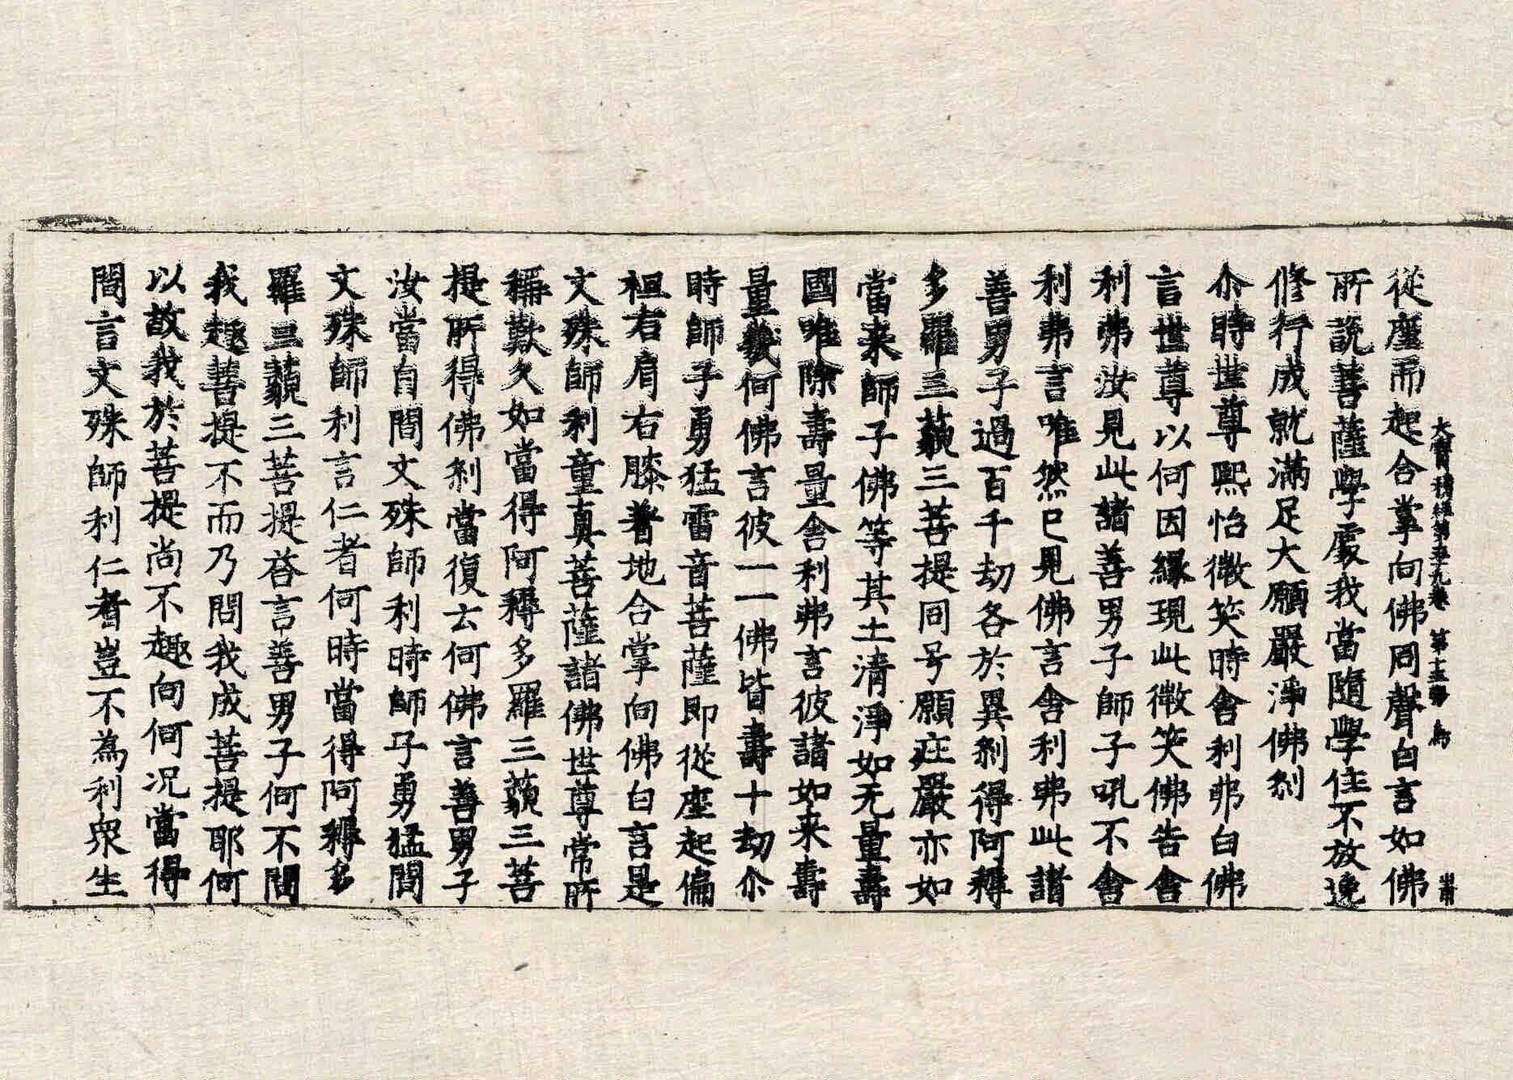 大寶積經第五十九卷　第十三張　鳥
從座而起合掌向佛同聲白言如佛
所說菩薩學處我當隨學住不放逸
修行成就滿足大願嚴淨佛刹
尒時世尊熙怡微笑時舍利弗白佛
言世尊以何因緣現此微笑佛告舍
利弗汝見此諸善男子師子吼不舍
利弗言唯然已見佛言舍利弗此諸
善男子過百千劫各於異刹得阿耨
多羅三藐三菩提同号願庄嚴亦如
當来師子佛等其土清淨如无量壽
國唯除壽量舍利弗言彼諸如来壽
量幾何佛言彼一一佛皆壽十劫尒
時師子勇猛雷音菩薩即從座起偏
袒右肩右膝著地合掌向佛白言是
文殊師利童真菩薩諸佛世尊常所
稱歎久如當得阿耨多羅三藐三菩
提所得佛刹當復云何佛言善男子
汝當自問文殊師利時師子勇猛問
文殊師利言仁者何時當得阿耨多
羅三藐三菩提荅言善男子何不問
我趣菩提不而乃問我成菩提耶何
以故我於菩提尚不趣向何况當得
問言文殊師利仁者豈不為利衆生